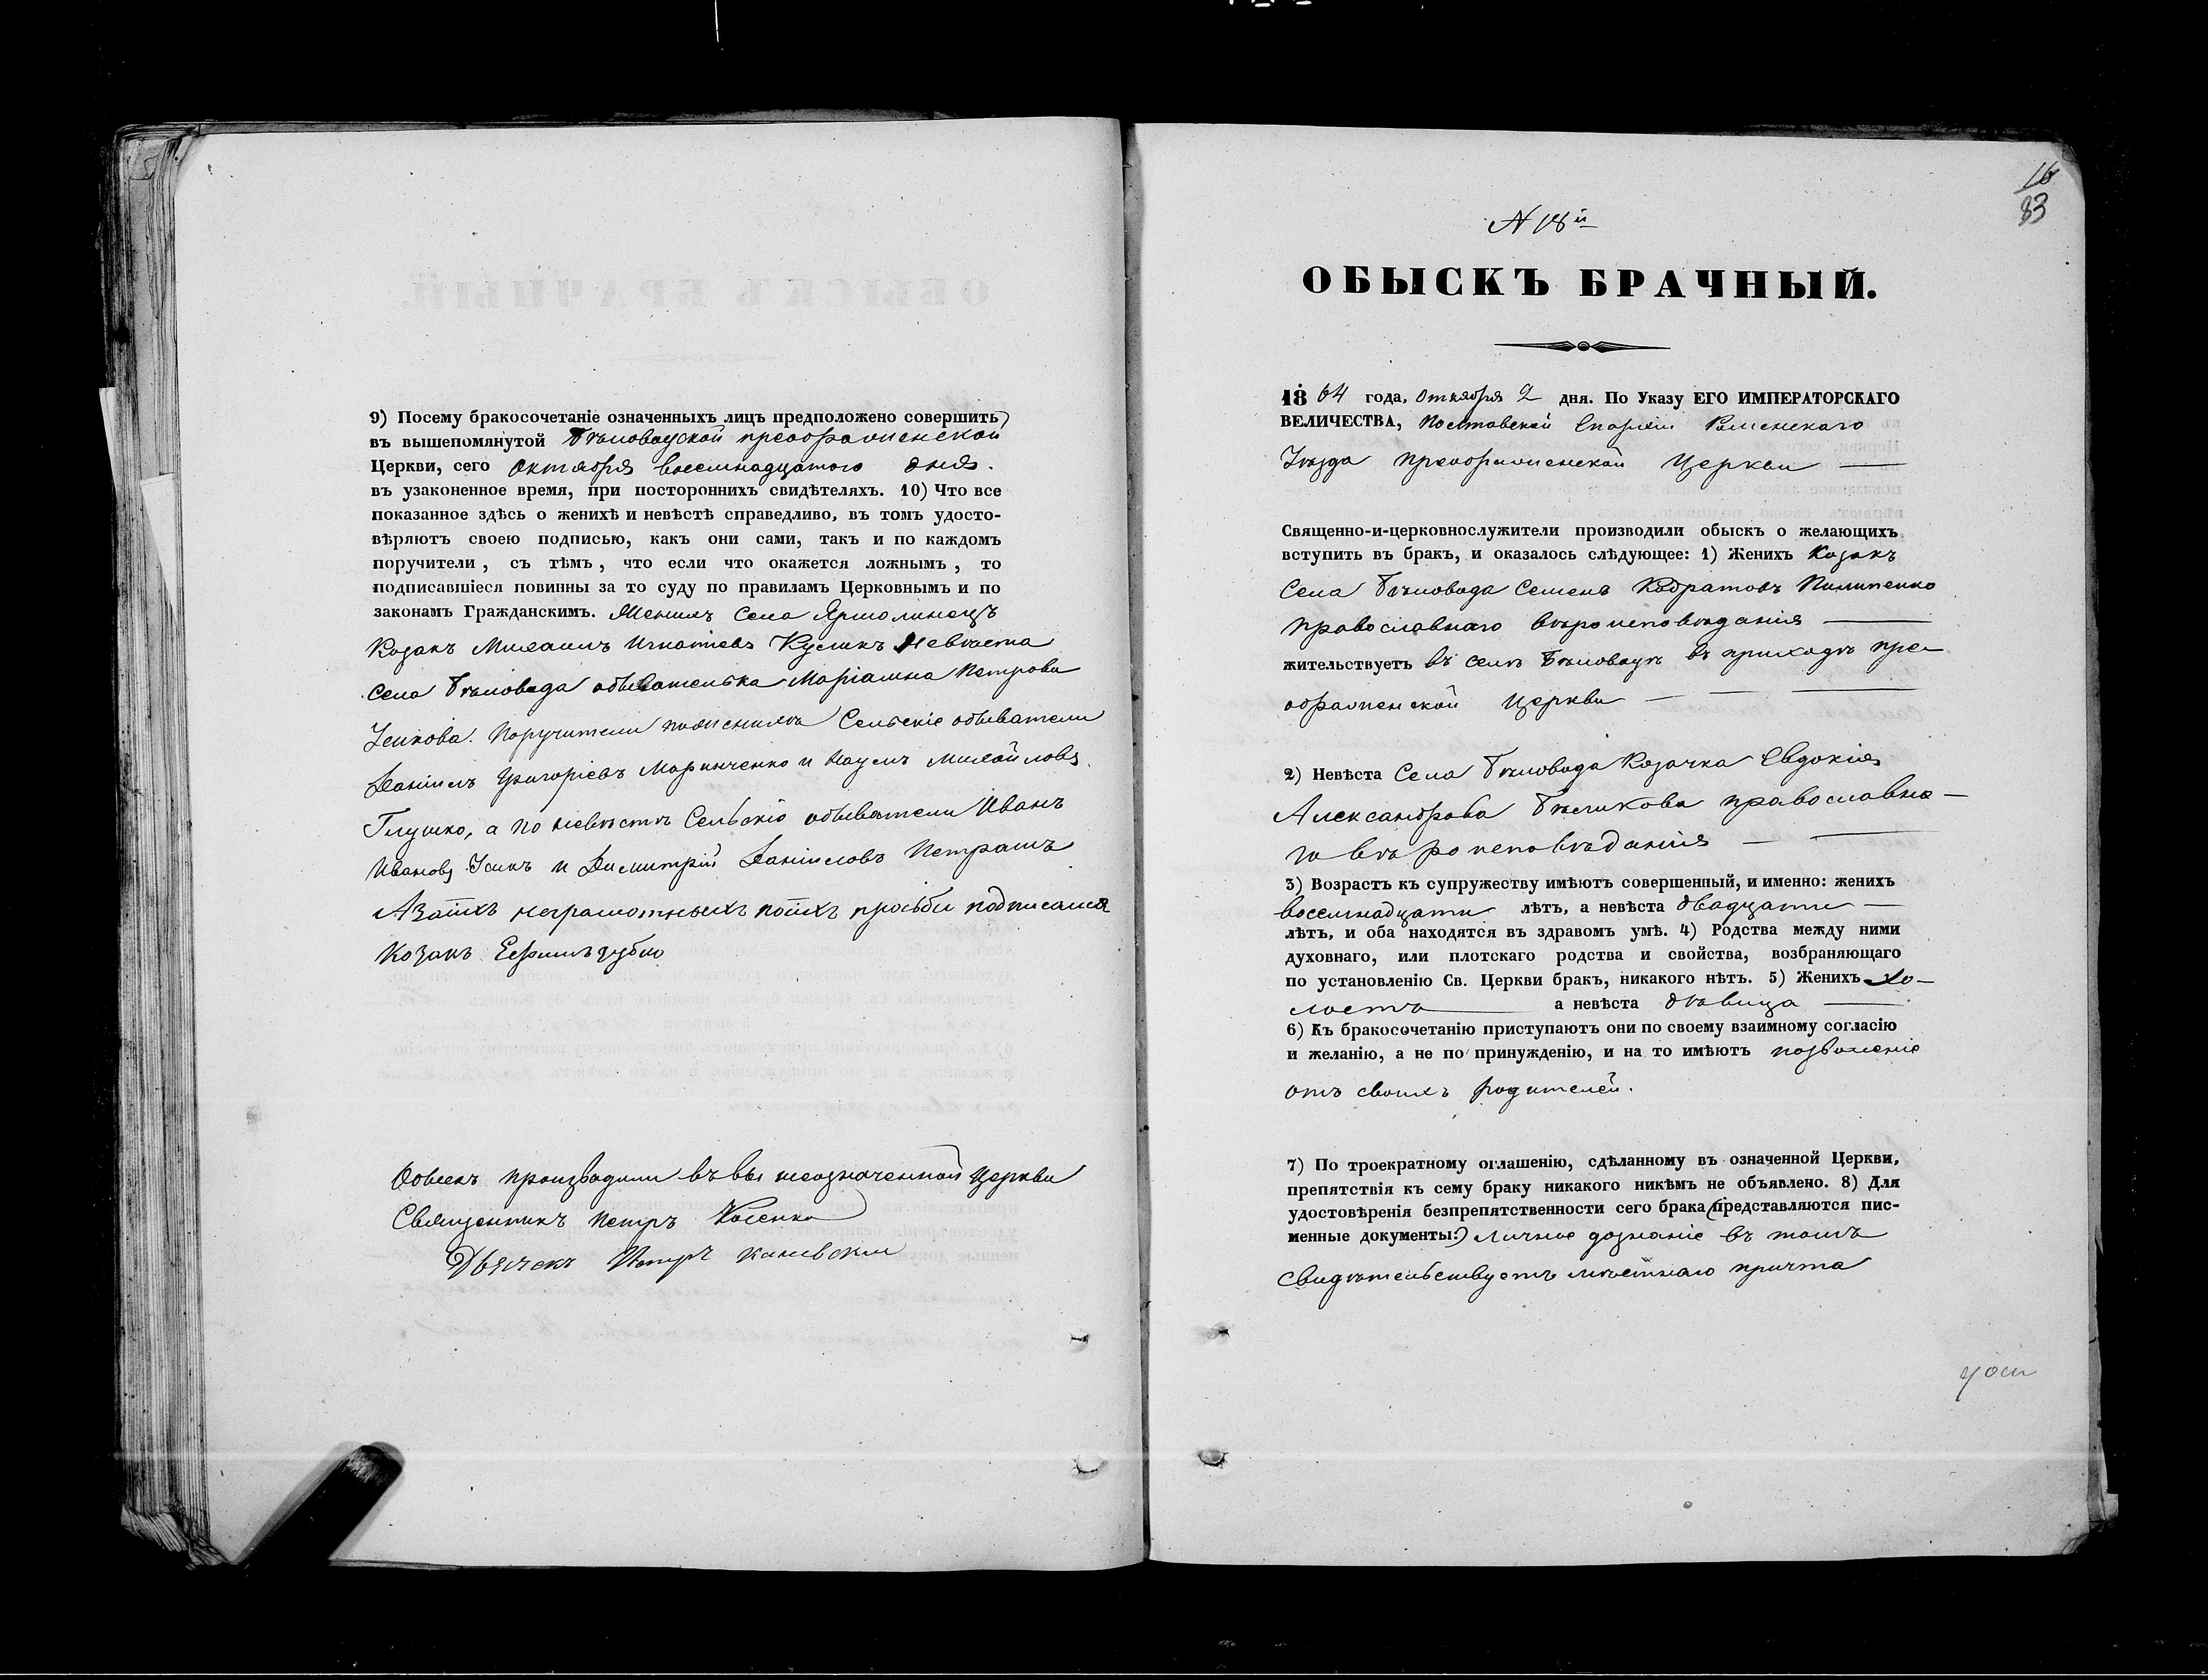 9) Посему бракосочетаніе означенныхъ лицъ предположено совершить
въ вышепомянутой Бѣловодской преображенской
Церкви, сего Октября восемнадцатого дня.
въ узаконенное время, при постороннихъ свидѣтеляхъ. 10) Что все
показанное здѣсь о женихѣ и невѣстѣ справедливо, въ томъ удосто-
вѣряютъ своею подписью, какъ они сами, такъ и по каждомъ
поручители, съ тѣмъ, что если что окажется ложнымъ, то
подписавшіеся повинны за то суду по правиламъ Церковнымъ и по
законамъ Гражданскимъ. Женихъ Села Ярмолинецъ
Козакъ Михаилъ Игнатіевъ Куликъ Невѣста
Села Бѣловода обывателька Маріамна Петрова
Усикова. Поручители по женихѣ Сельскіе обыватели
Даніилъ Григоріевъ Маринченко и Наумъ Михайловъ
Глушко, а по невѣстѣ Сельскіе обыватели Иванъ
Ивановъ Усикъ и Димитрій Даніиловъ Петрашъ
А за тихъ неграмотныхъ по ихъ прозьби подписался
Козакъ Ефимъ зубко
Обыскъ производили въ вышеозначенной Церкви
Священникъ Петръ
Дьячекъ Петръ Каневскій
16
83
N 18й
ОБЫСКЪ БРАЧНЫЙ.
1864 года, Октября 2 дня. По Указу ЕГО ИМПЕРАТОРСКАГО
ВЕЛИЧЕСТВА, Полтавской Епархіи Роменскаго
Уѣзда преображенской Церкви
Священно-и-церковнослужители производили обыскъ о желающихъ
вступить въ бракъ, и оказалось слѣдующее: 1) Женихъ Козакъ
Села Бѣловода Семенъ Кодратовъ Пилипенко
православнаго вѣроисповѣданія
жительствуетъ въ селѣ Бѣловодѣ въ приходѣ пре-
ображенской Церкви
2) Невѣста Села Бѣловода Козачка Евдокія
Александрова Бѣликова православна-
го вѣроисповѣданія
3) Возрастъ къ супружеству имѣютъ совершенный, и именно: женихъ
восемнадцати лѣтъ, а невѣста двадцати
лѣтъ, и оба находятся въ здравомъ умѣ. 4) Родства между ними
духовнаго, или плотскаго родства и свойства, возбраняющаго
по установленію Св. Церкви бракъ, никакого нѣтъ. 5) Женихъ хо-
лостъ а невѣста дѣвица
6) Къ бракосочетанію приступаютъ они по своему взаимному согласію
и желанію, а не по принужденію, и на то имѣютъ позволеніе
отъ своихъ родителей.
7) По троекратному оглашенію, сдѣланному въ означенной Церкви,
препятствія къ сему браку никакого никѣмъ не объявлено. 8) Для
удостовѣренія безпрепятственности сего брака (представляются пис-
менные документы:) личное дознаніе въ томъ
свидѣтельствуетъ мѣстнаго причта